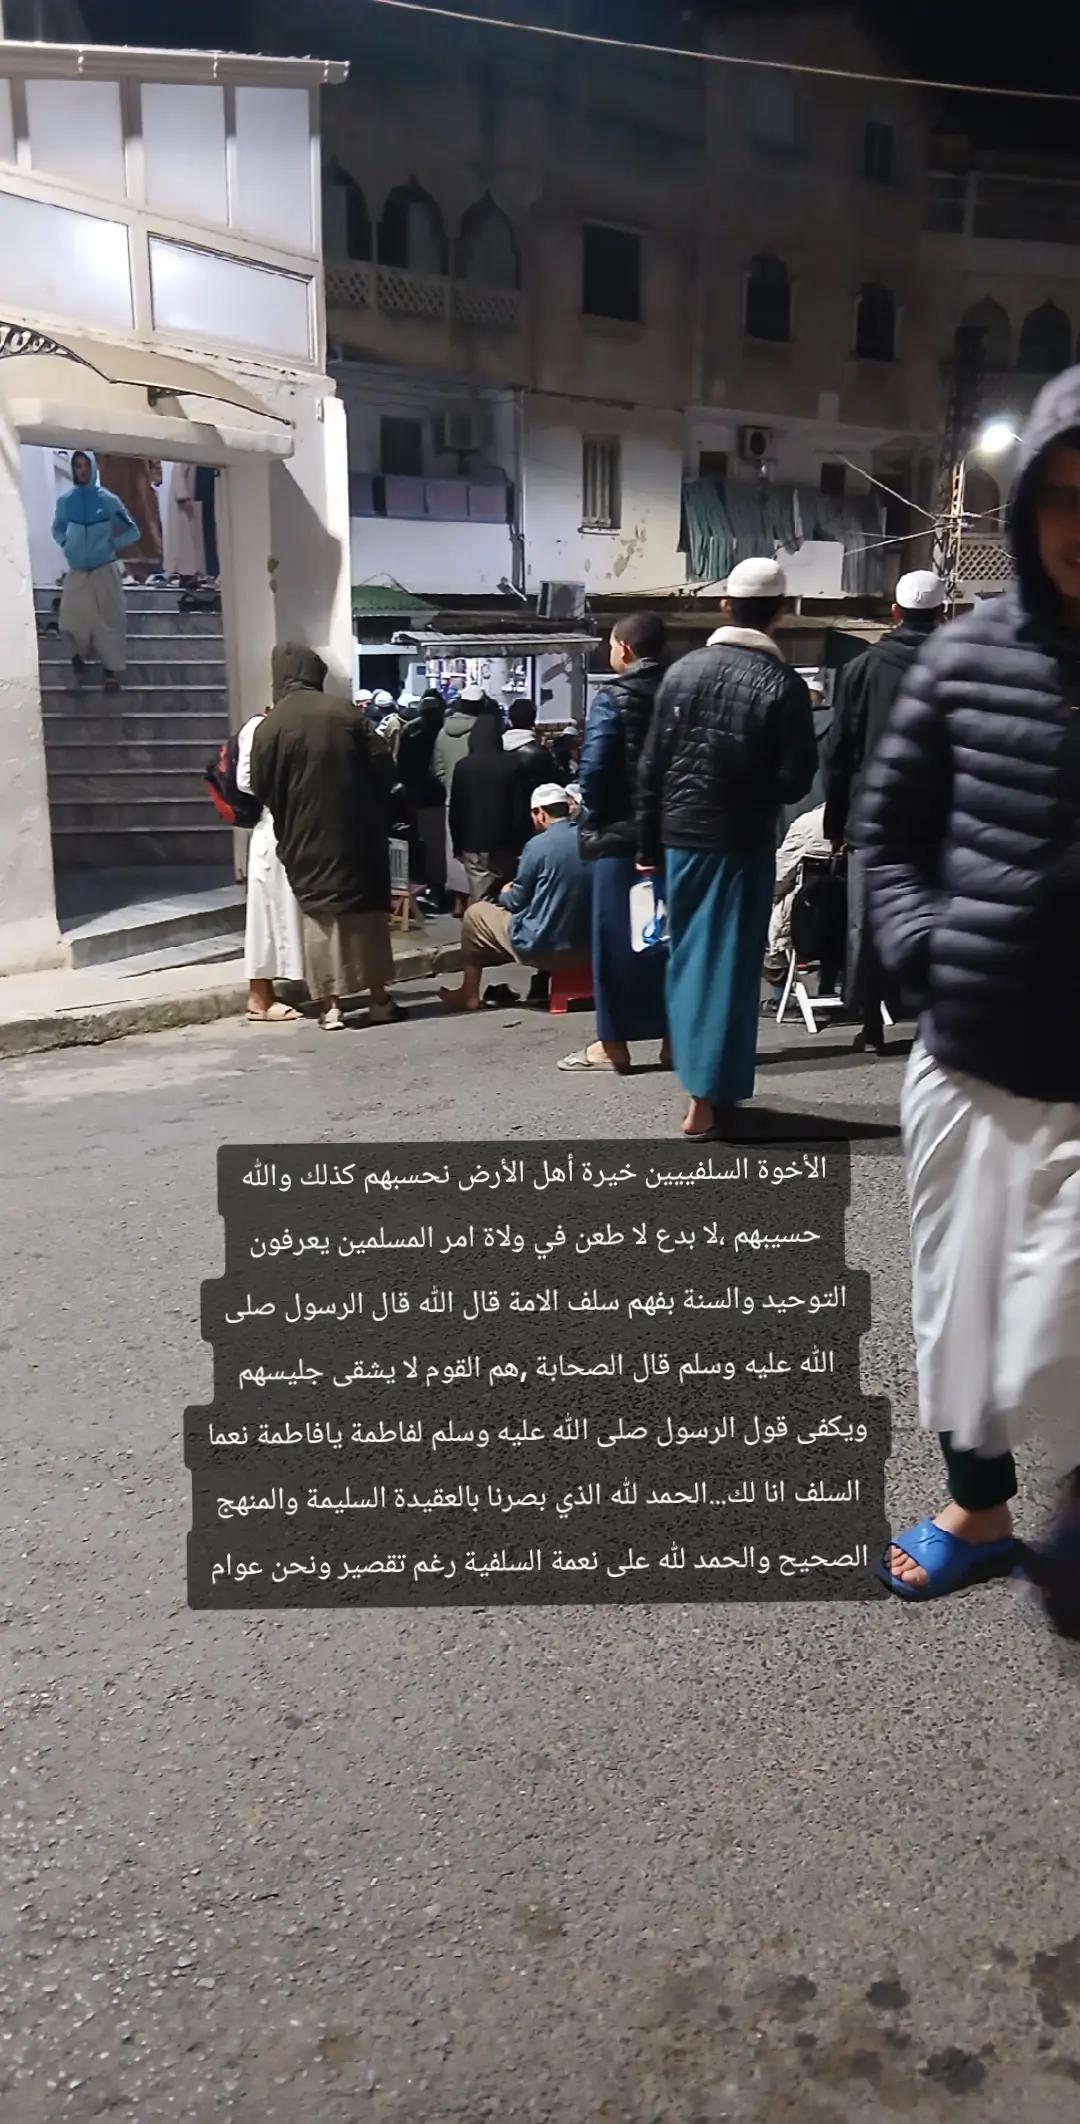 الأخوة السلفييين خيرة أهل الأرض نحسبهم كذلك والله
حسيبهم ،لا بدع لا طعن في ولاة امر المسلمين يعرفون
التوحيد والسنة بفهم سلف الامة قال الله قال الرسول صلى
الله عليه وسلم قال الصحابة ,هم القوم لا يشقى جليسهم
ويكفى قول الرسول صلى الله عليه وسلم لفاطمة يافاطمة نعما
السلف انا لك...الحمد لله الذي بصرنا بالعقيدة السليمة والمنهج
الصحيح والحمد لله على نعمة السلفية رغم تقصير ونحن عوام